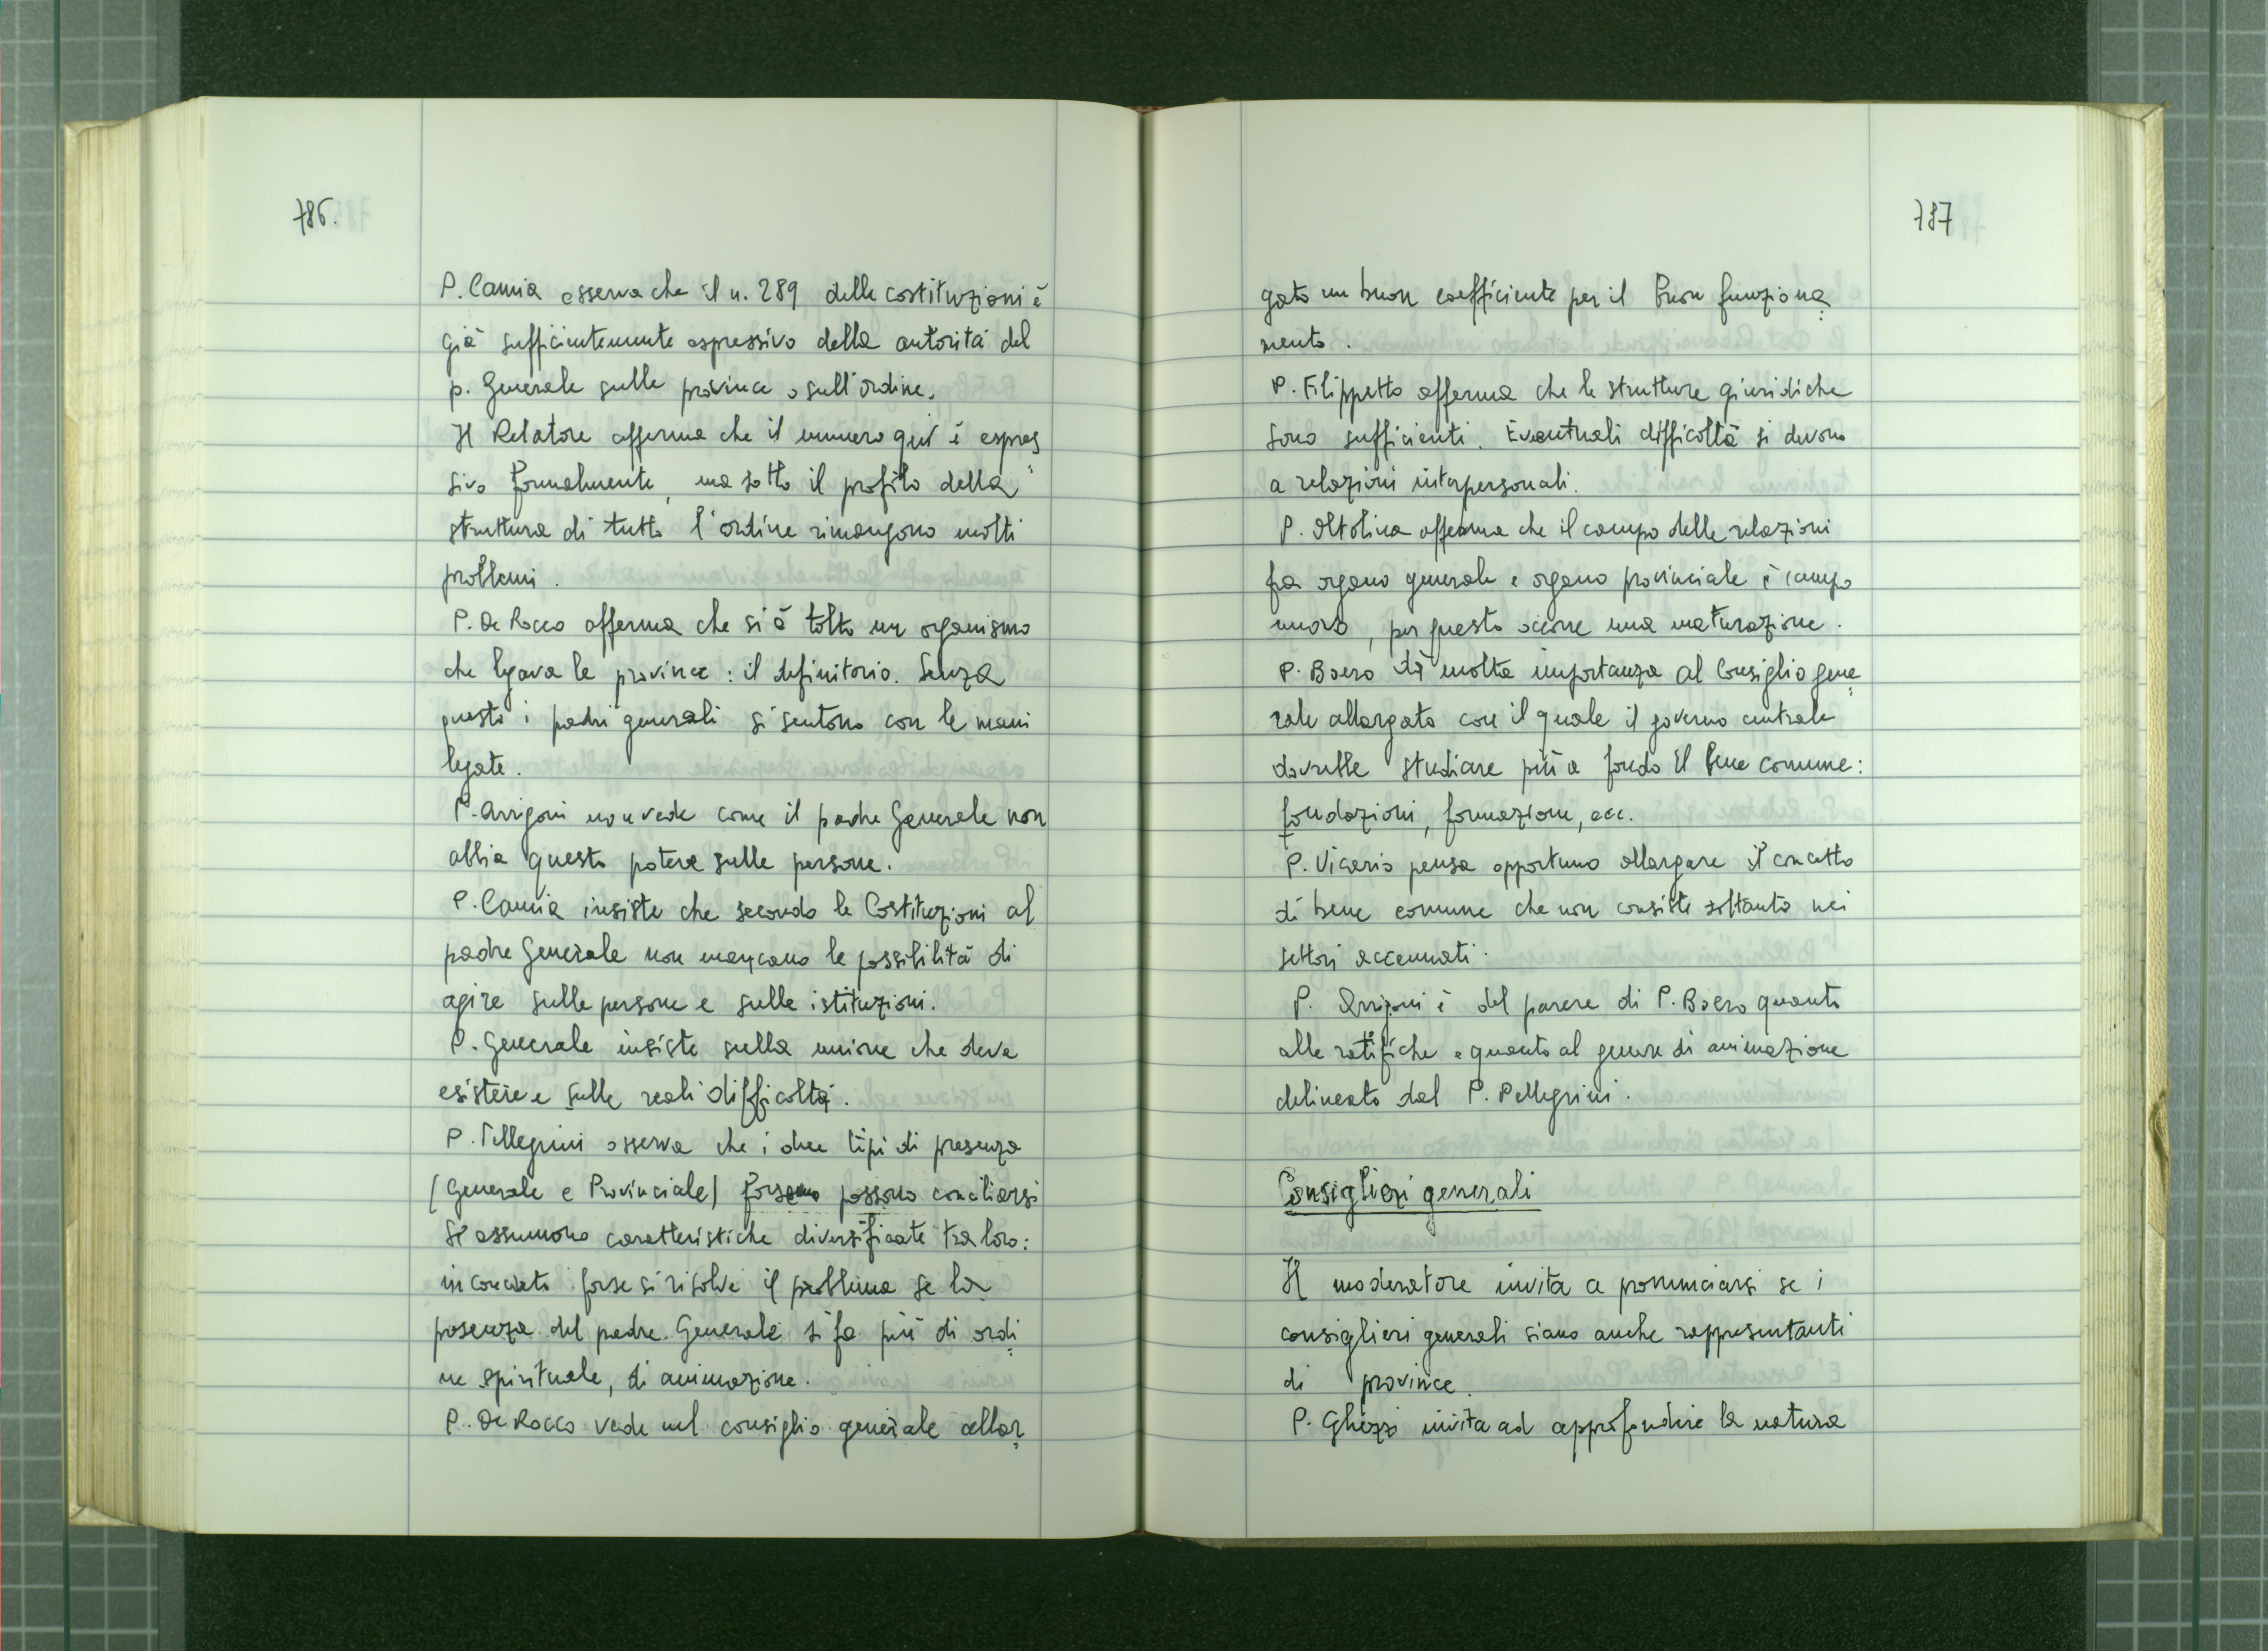 786.
P. Camia osserva che il n. 289 delle costituzioni è
già sufficientemente espressivo della autorità del
p. Generale sulle province o sull'ordine.
Il Relatore afferma che il numero qui è espres
sivo formalmente, ma sotto il profilo della
struttura di tutto l'ordine rimangono molti
problemi.
P. De Rocco afferma che si è tolto un organismo
che legava le province: il definitorio. Senza
questo i padri generali si sentono con le mani
legate.
P. Arrigoni non vede come il padre Generale non
abbia questo potere sulle persone.
P. Camia insiste che secondo le Costituzioni al
padre Generale non mancano le possibilità di
agire sulle persone e sulle istituzioni.
P. Generale insiste sulla unione che deve
esistere e sulle reali difficoltà.
P. Pellegrini osserva che i due tipi di presenza
(Generale e Provinciale) forse possono conciliarsi
se assumono caratteristiche diversificate tra loro:
in concreto forse si risolve il problema se la
presenza del padre Generale si fa più di ordi=
ne spirituale, di animazione.
P. De Rocco vede nel consiglio generale allar=
787
gato un buon coefficiente per il buon funziona=
mento.
P. Filippetto afferma che le strutture giuridiche
sono sufficienti. Eventuali difficoltà si devono
a relazioni interpersonali.
P. Oltolina afferma che il campo delle relazioni
fra organo generale e organo provinciale è campo
nuovo, per questo occorre una maturazione.
P. Boero dà molta importanza al Consiglio gene=
rale allargato con il quale il governo centrale
dovrebbe studiare più a fondo il bene comune:
fondazioni, formazione, ecc.
P. Vicario pensa opportuno allargare il concetto
di bene comune che non consiste soltanto nei
settori accennati.
P. Arrigoni è del parere di P. Boero quanto
alle ratifiche e quanto al genere di animazione
delineato dal P. Pellegrini.
Consiglieri generali
Il moderatore invita a pronunciarsi se i
consiglieri generali siano anche rappresentanti
di province.
P. Ghezzi invita ad approfondire la natura